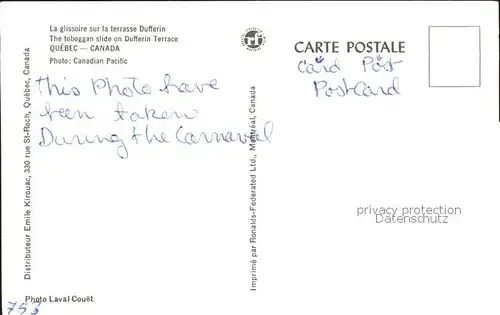 La glissoire sur la terrasse Dufferin
The toboggan slide on Dufferin Terrace
QUÉBEC — CANADA
Photo: Canadian Pacific
This Photo have
been taken
During the Carnaval
CARTE POSTALE
Card Post
PostCard
Distributeur Emile Kirouac, 330 rue St-Roch, Québec, Canada
Imprimé par Ronalds-Federated Ltd., Montréal, Canada
privacy protection
Datenschutz
Photo Laval Couët
753